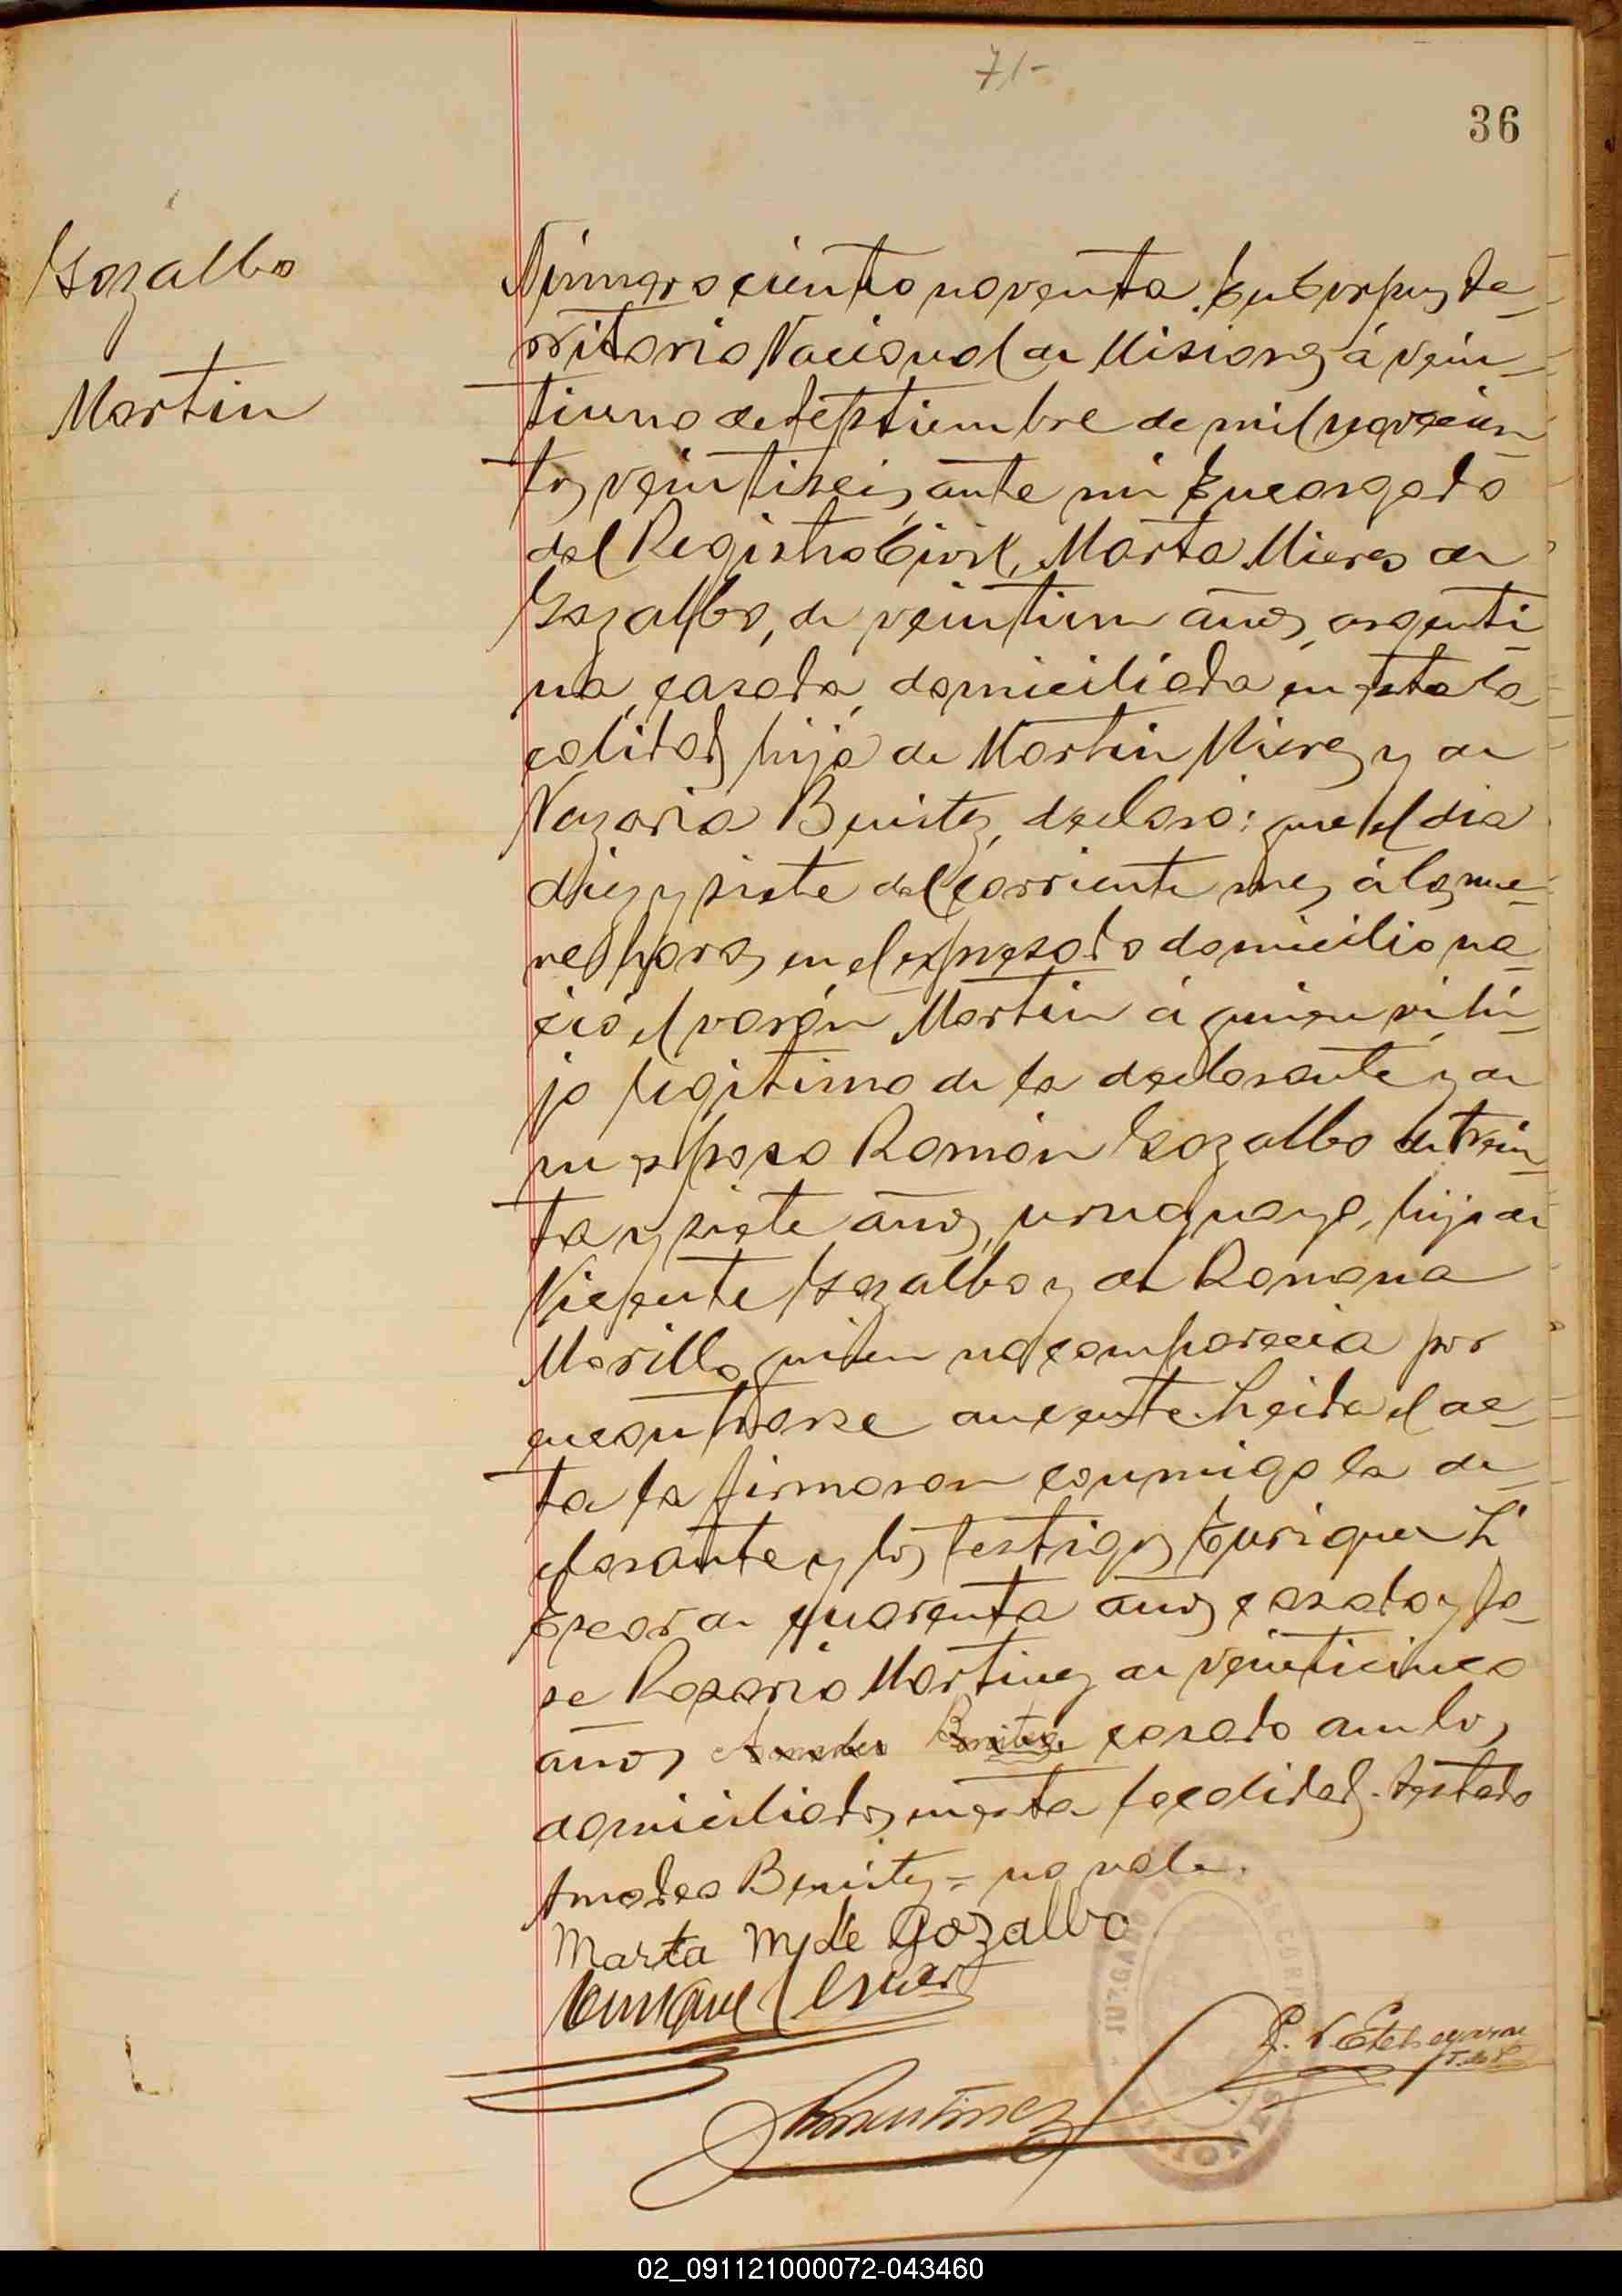 71-
36
Gozalbo
Martin
Número ciento noventa. En Corpus, te-
rritorio Nacional de Misiones á vein-
tiuno de Septiembre de mil novecien-
tos veintiseis, ante mi Encargado
del Registro Civil, Marta Mieres de
Gozalbo, de veintiun años, argenti-
na, casada, domiciliada en esta lo
calidad, hija de Martin Mieres y de
Nazaria Benitez, declaró: que el dia
diez y siete del corriente mes á las nue-
ve horas, en el expresado domicilio na-
ció el varón Martin á quien vi hi-
jo legitimo de la declarante y de
su esposo Ramón Gozalbo de trein-
ta y siete años, uruguayo, hijo de
Vicente Gozalbo y de Romana
Morillo, quien no comparecia por
encontrarse ausente. Leida el ac-
ta la firmaron conmigo la de-
clarante y los testigos Enrique L
Escar de cuarenta años casado y Jo-
se Rosario Martinez de veinticinco
años Amadeo Benitez casado ambos
domiciliados en esta localidad. Testado
Amadeo Benitez = no vale.
Marta M de Gozalbo
Enrique L Escar
JUZGADO DE PAZ DE CORPUS
MISIONES